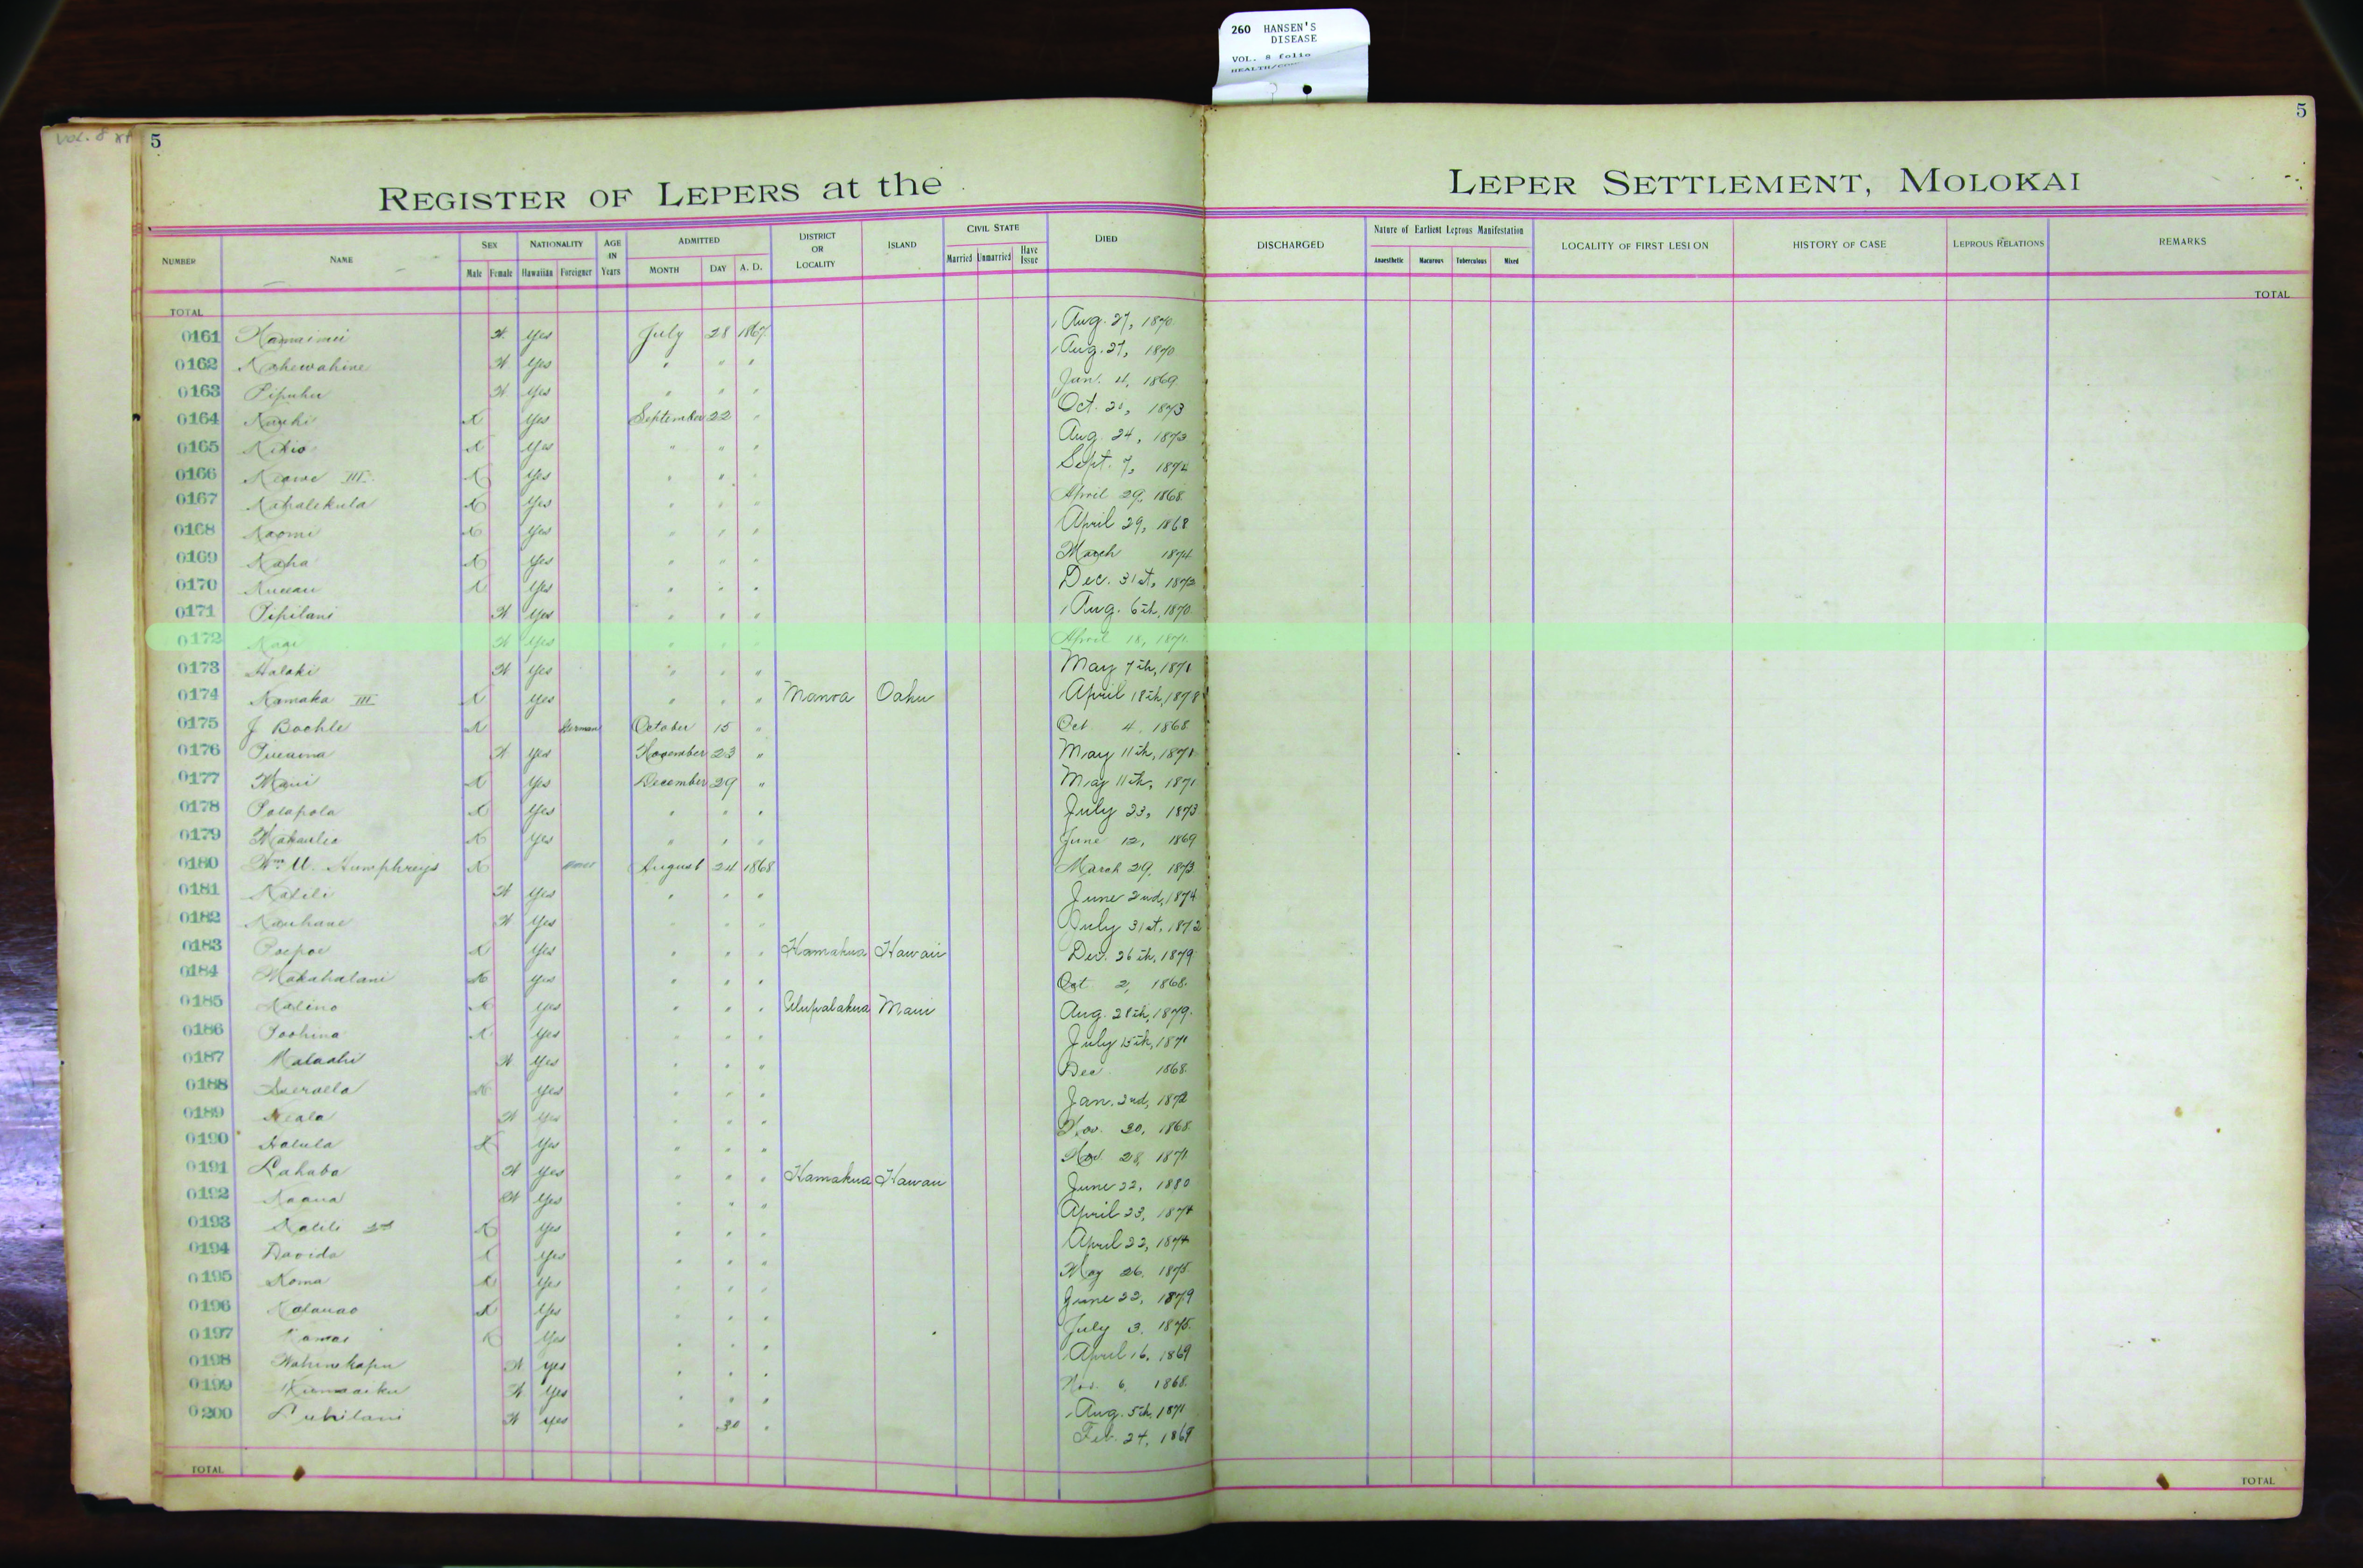 260 HANSEN'S
DISEASE
VOL. 8 folio
VOL. 8
5 5
REGISTER OF LEPERS at the LEPER SETTLEMENT, MOLOKAI
NUMBER NAME SEX Male Female NATIONALITY Hawaiian Foreigner AGE IN Years ADMITTED MONTH DAY A. D. DISTRICT OR LOCALITY ISLAND CIVIL STATE Married Unmarried Have Issue DIED DISCHARGED Nature of Earliest Leprous Manifestation Anaesthetic Macurous Tuberculous Mixed LOCALITY OF FIRST LESION HISTORY OF CASE LEPROUS RELATIONS REMARKS
TOTAL TOTAL
0161 Yes July 28 1867 Aug. 27, 1870
0162 Kahewahine Yes " " " Aug. 27, 1870
0163 Pipuhu Yes " " " Jan. 4, 1869
0164 Yes September 22 " Oct. 1873
0165 Yes " " " Aug. 24,
0166 Keawe III Yes " " " Sept. 7, 1874
0167 Kahalekula Yes " " " April 29, 1868
0168 Naomi Yes " " " April 29, 1868
0169 Kaha Yes " " " March 1874
0170 Yes " " " Dec. 31st,
0171 Pipilani Yes " " " Aug. 6th, 1870
0172 Yes " " " April 18, 1871
0173 Halaki Yes " " " May 7th, 1871
0174 Kamaka III Yes " " " Manoa Oahu April 18th, 1878
0175 J Bochle German October 15 " Oct 4, 1868
0176 Yes November 23 " May 11th, 1871
0177 Maui Yes December 29 " May 11th, 1871
0178 Polapola Yes " " " July 23, 1873
0179 Yes " " " June 12, 1869
0180 Wm. Humphreys August 24 1868 March 29,
0181 Kalili Yes " " " June 2nd, 1874
0182 Kauhane Yes " " " July 31st, 1872
0183 Poepoe Yes " " " Hamakua Hawaii Dec. 26th, 1879
0184 Makahalani Yes " " " Oct 2, 1868
0185 Kalino Yes " " " Ulupalakua Maui Aug. 28th, 1879
0186 Poohina Yes " " " July 15th, 1871
0187 Malaahi Yes " " " Dec 1868
0188 Yes " " " Jan. 2nd, 1872
0189 Yes " " " Nov. 30, 1868
0190 Halula Yes " " " Nov. 28, 1871
0191 Lahaba Yes " " " Hamakua Hawaii June 22, 1880
0192 Kaaua Yes " " " April 23, 1874
0193 Kalili 2nd Yes " " " April 22, 1874
0194 Davida Yes " " " May 26, 1875
0195 Koma Yes " " " June 22, 1879
0196 Kalauao Yes " " " July 3, 1875
0197 Kamai Yes " " " April 16, 1869
0198 Wahinekapu Yes " " " Nov. 6, 1868
0199 Yes " " " Aug. 5th, 1871
0200 Yes " 30 " Feb. 24, 1869
TOTAL TOTAL